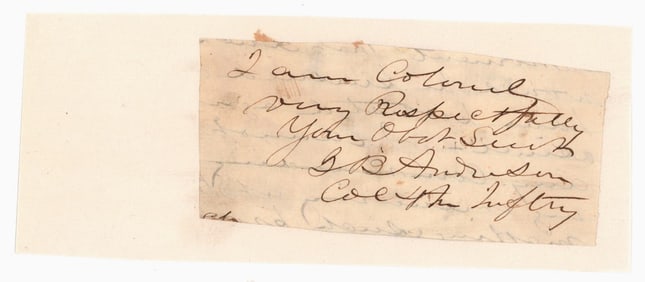 I am Colonel
very Respectfully
Your Obdt Servt
G B Anderson
Col 4th Inftry